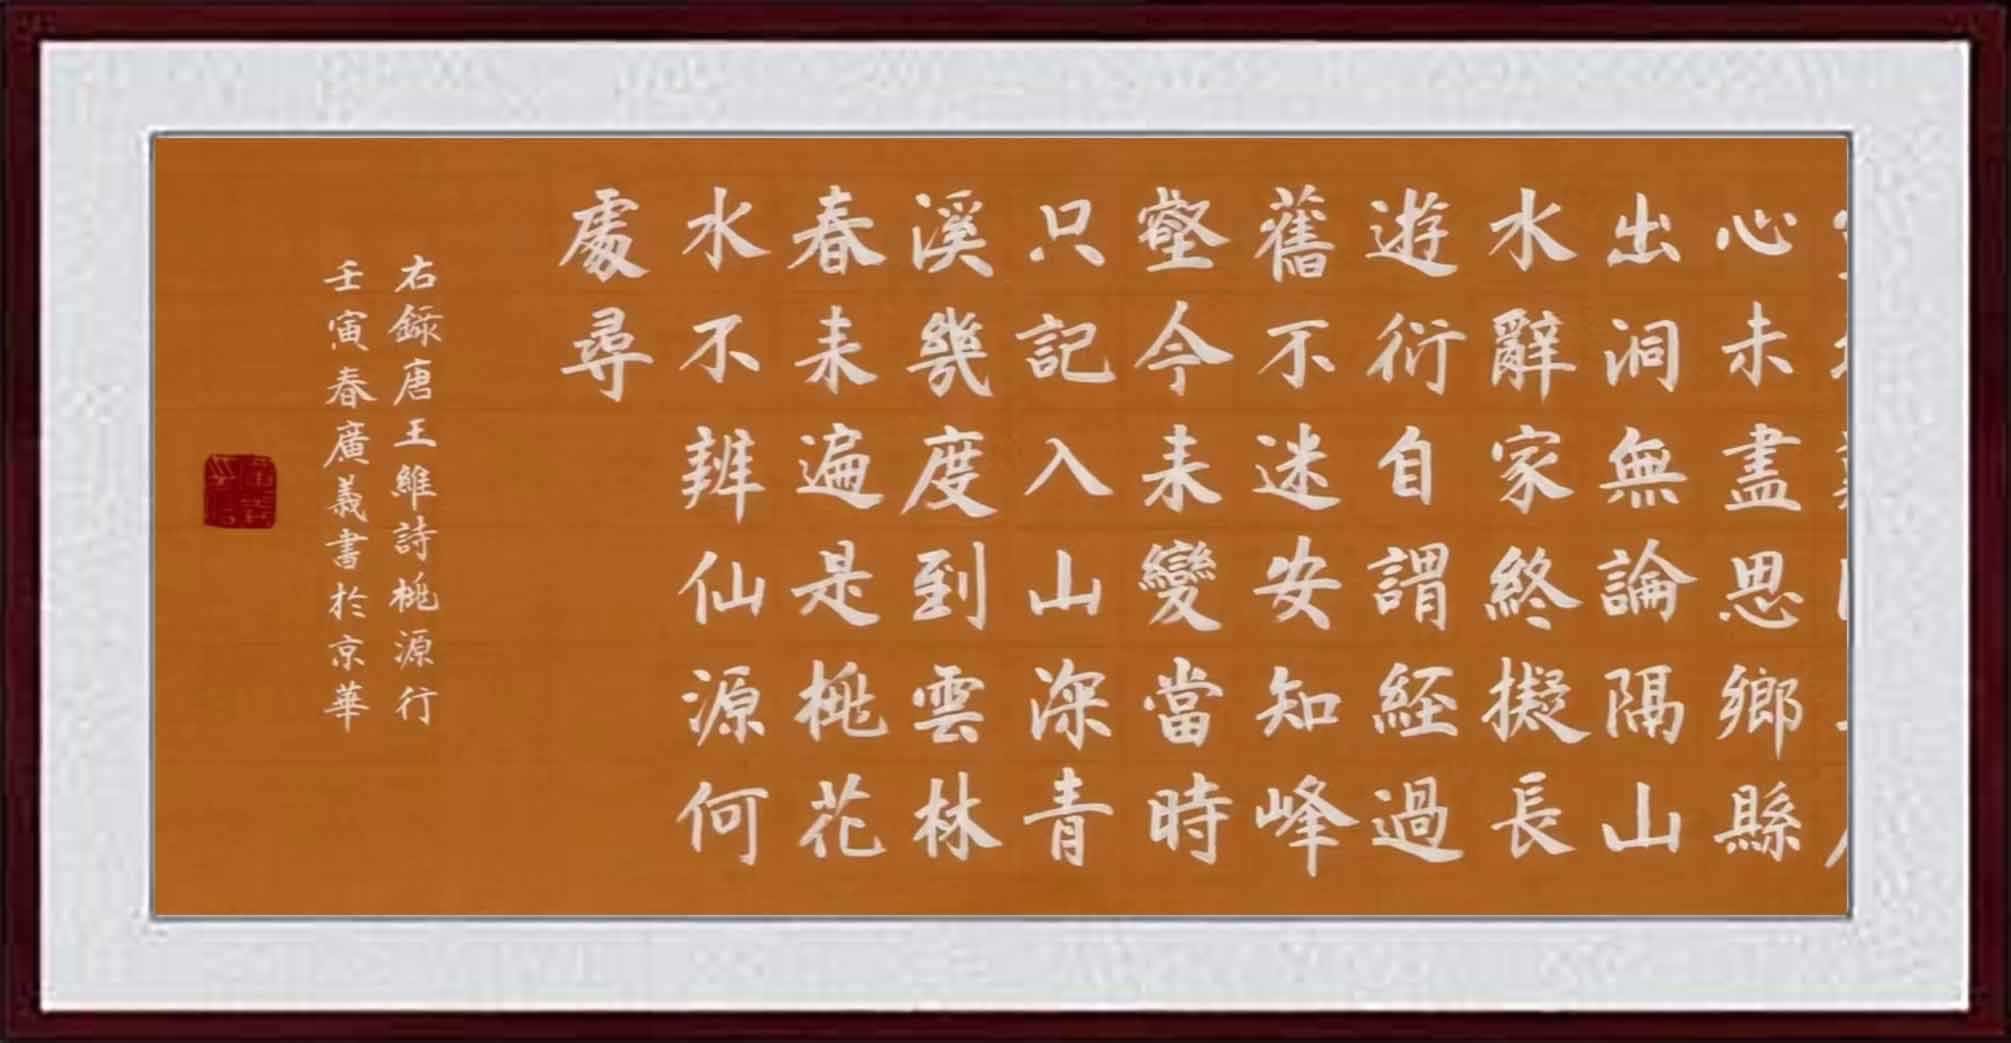 心未盡思鄉縣
出洞無論隔山
水辭家終擬長
遊衍自謂經過
舊不迷安知峰
壑今来變當時
只記入山深青
溪幾度到雲林
春来遍是桃花
水不辨仙源何
處尋
右録唐王維詩桃源行
壬寅春廣義書於京華